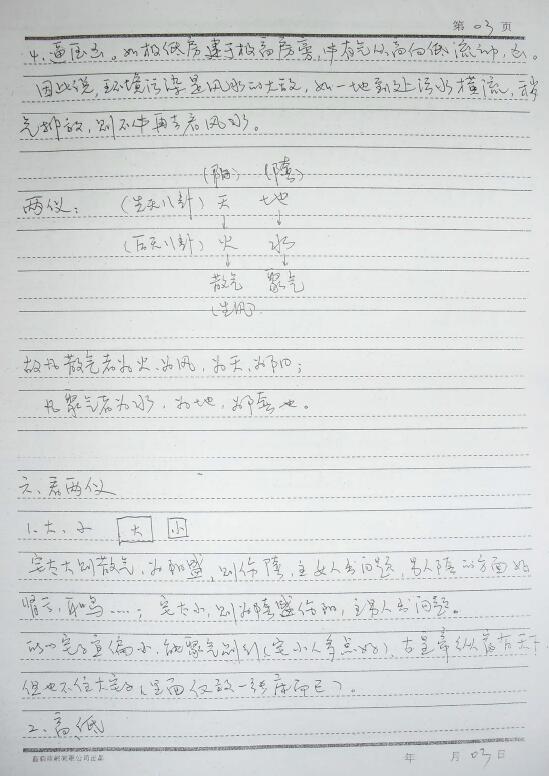 第 03 页
4. 逼压么。如极低房建于极高房旁,中有气从高向低流动,么。
因此说,环境污染是风水的大敌,如一地到处污水横流,
气排放,则不中再去看风水。
(阳) (阴)
两仪: (先天八卦) 天 地
↓ ↓
(后天八卦) 火 水
↓ ↓
散气 聚气
(生风)
故凡散气者为火、为风,为天、为阳;
凡聚气者为水,为地,为阴也。
六、看两仪
1. 大、小 大 小
宅太大则散气,为阳盛,则伤阴,主女人出问题,男人阴的方面如
肾亏、耳鸣……;宅太小,则为阴盛伤阳,主男人出问题。
所以宅宜偏小,能聚气则利(宅小人多点好),古皇帝纵富有天下,
但也不住大宅(里面仅放一张床而已)。
2. 高、低
年 月 03 日